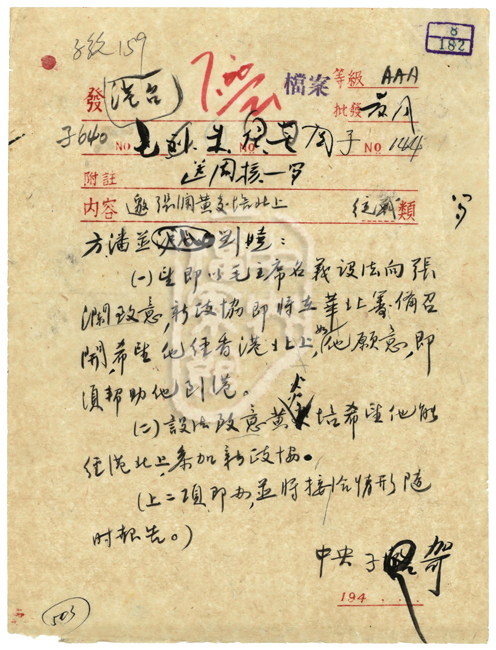 8
182
子敘159
發 港台
檔案 等級 AAA
批發
子640 NO NO 子 NO 144
送周核一
附註
内容 邀張瀾黄炎培北上 類
方、潘並 刘曉：
(一)望即以毛主席名義設法向張
瀾致意，新政協即將在華北籌備召
開，希望他經香港北上，如他願意，即
須幫助他到港。
(二)設法致意黄炎培希望他能
經港北上參加新政協。
(上二項即办，並將接洽情形隨
時報告。)
中央 子
194
503